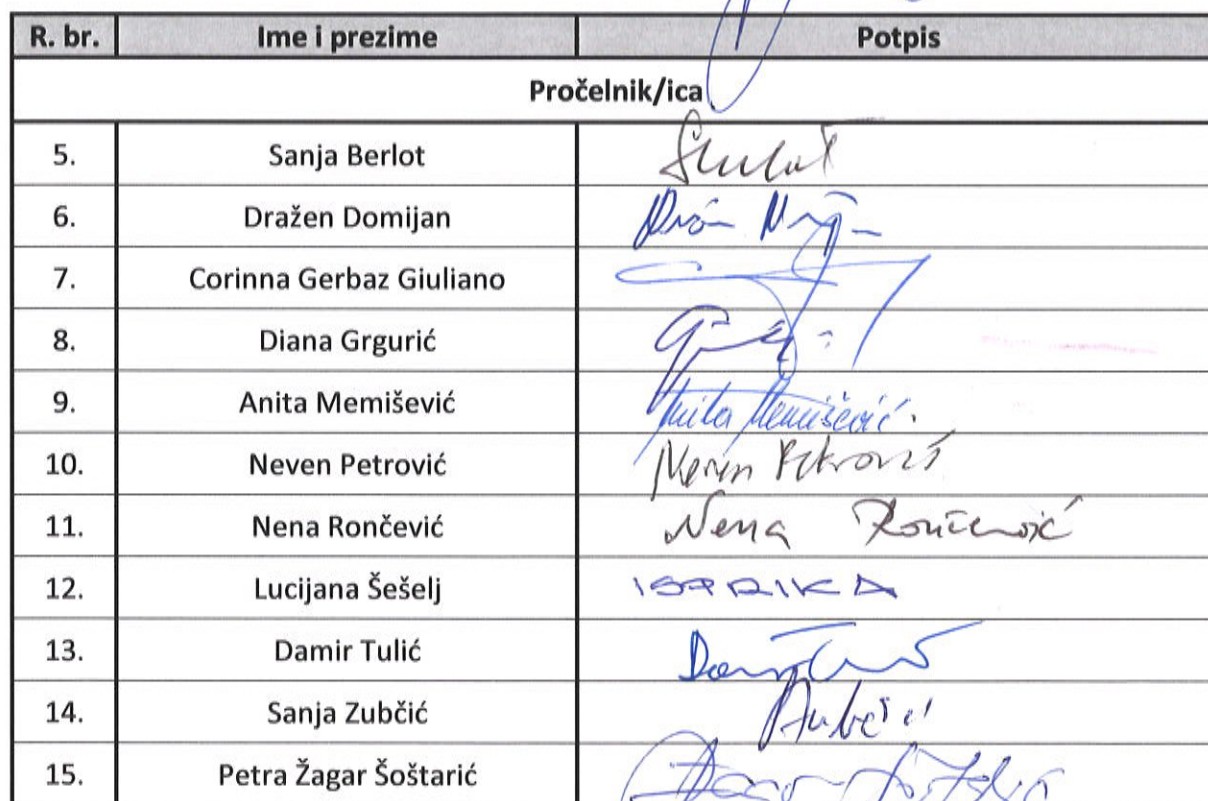 R. br. Ime i prezime Potpis
Pročelnik/ica
5. Sanja Berlot
6. Dražen Domijan
7. Corinna Gerbaz Giuliano
8. Diana Grgurić
9. Anita Memišević Anita Memišević
10. Neven Petrović Neven Petrović
11. Nena Rončević Nena Rončević
12. Lucijana Šešelj
13. Damir Tulić
14. Sanja Zubčić
15. Petra Žagar Šoštarić